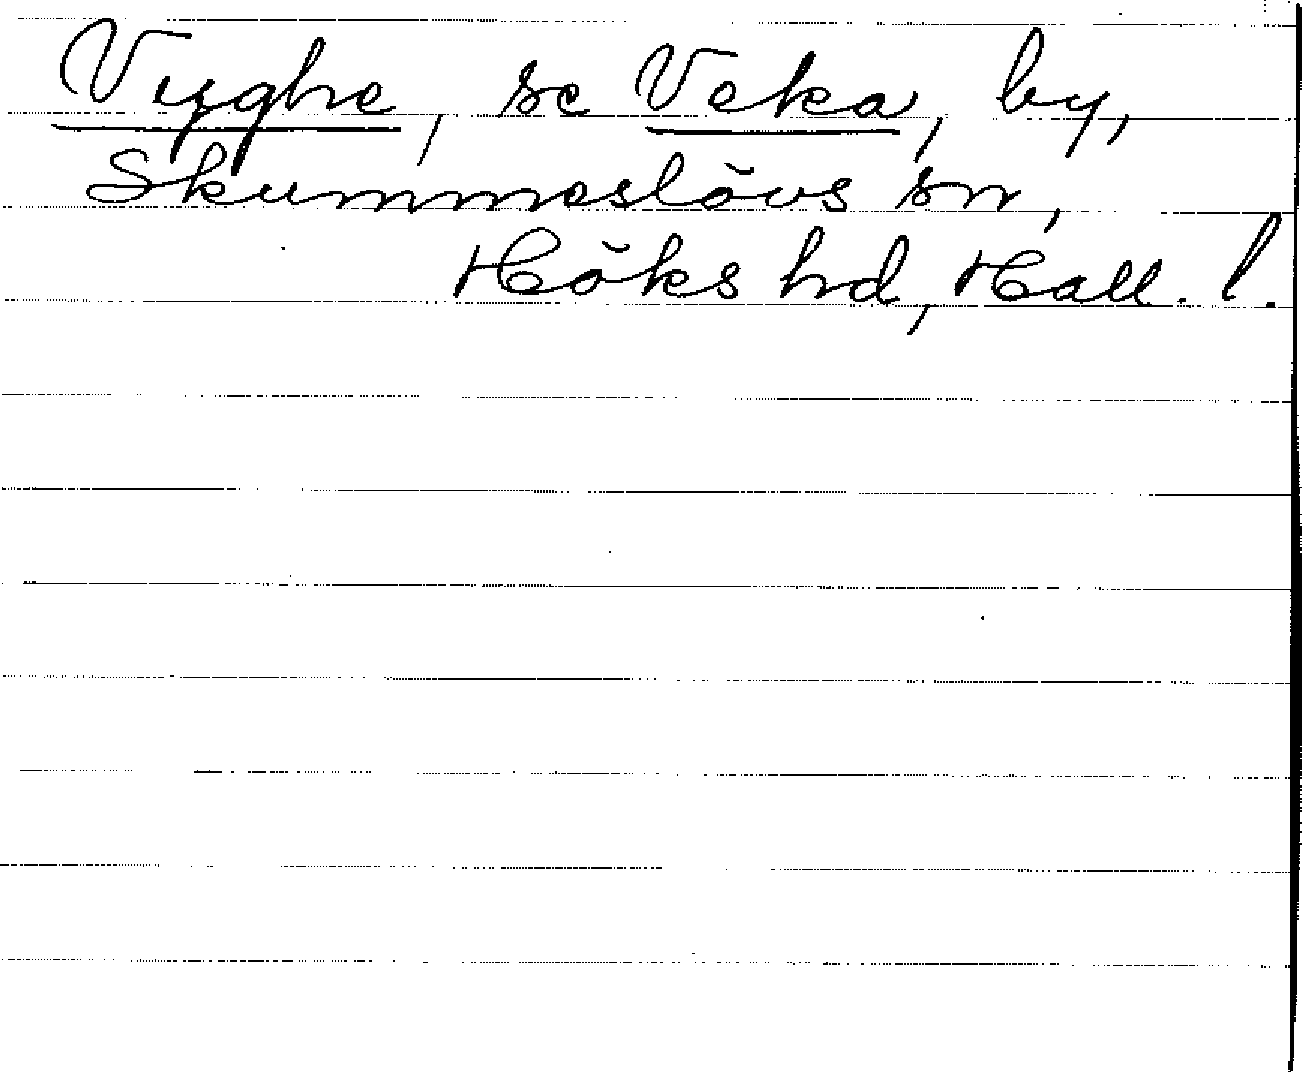 Vyghe, se Veka, by,
Skummeslövs sn,
Höks hd, Hall. l.